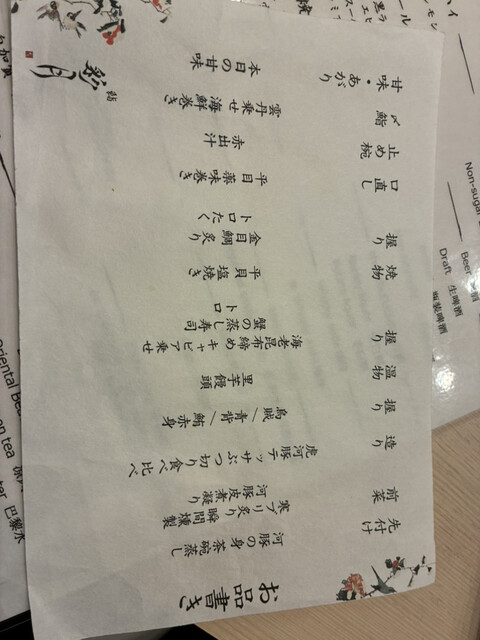 お品書き
先付け
河豚の身茶碗蒸し
前菜
寒ブリ炙り瞬間燻製
河豚皮煮凝り
造り
虎河豚テッサぶつ切り食べ比べ
握り
烏賊/青背/鮪赤身
温物
里芋饅頭
握り
海老昆布締めキャビア乗せ
蟹の蒸し寿司
トロ
焼物
平貝塩焼き
握り
金目鯛炙り
トロたく
口直し
平目薬味巻き
止め椀
赤出汁
〆鮨
雲丹乗せ海鮮巻き
甘味・あがり
本日の甘味
鮨
彩月
Non-sugar
Beer
Draft 生啤酒
瓶裝啤酒
Oriental
巴黎水